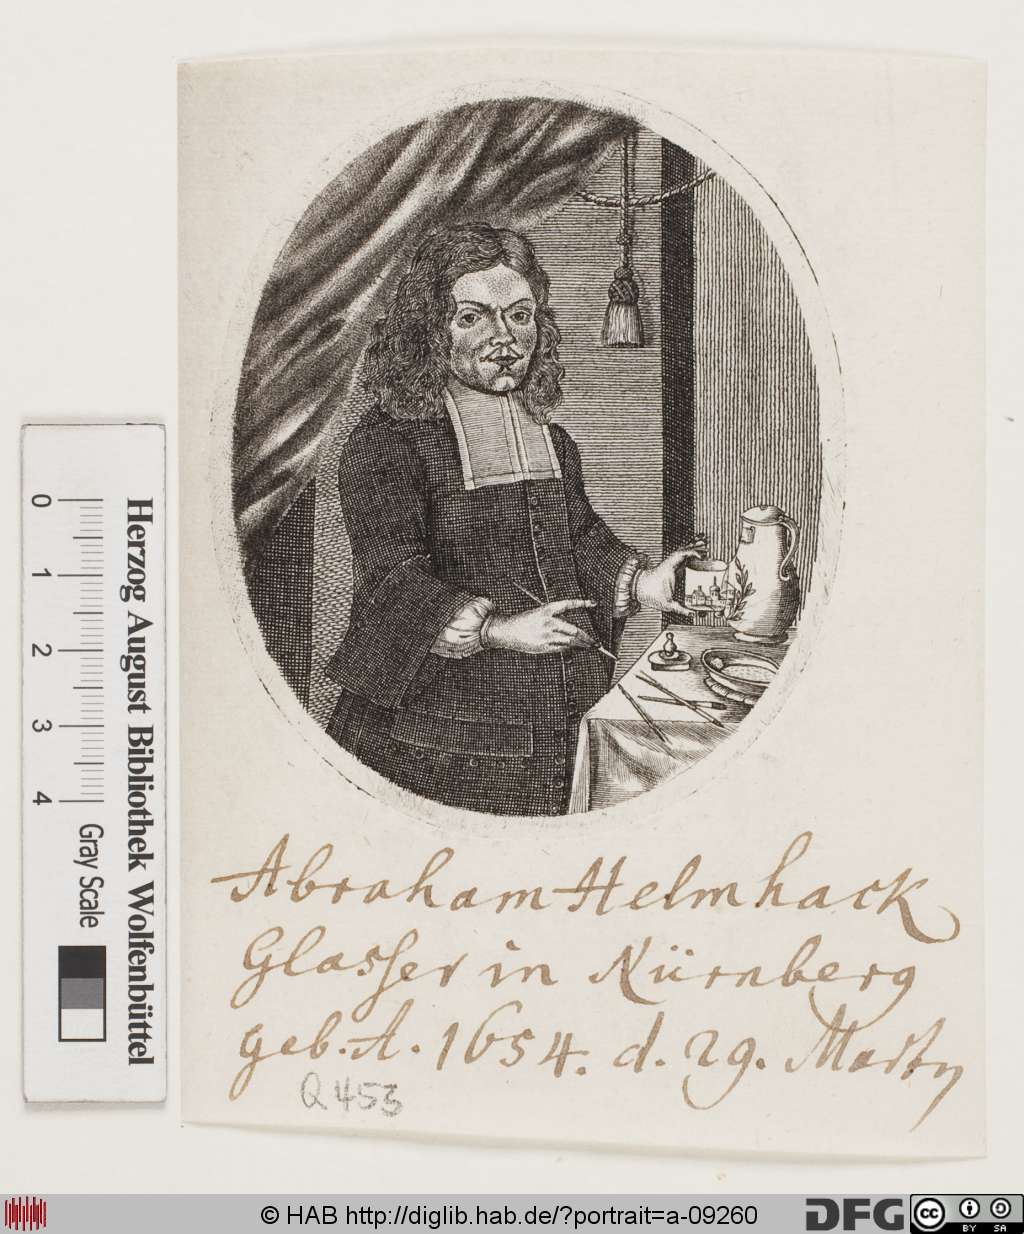 Abraham Helmhack
Glasser in Nürnberg
geb. A. 1654. d. 29. Marty
Q 453
0 1 2 3 4
Herzog August Bibliothek Wolfenbüttel
Gray Scale
© HAB http://diglib.hab.de/?portrait=a-09260
DFG
cc BY SA